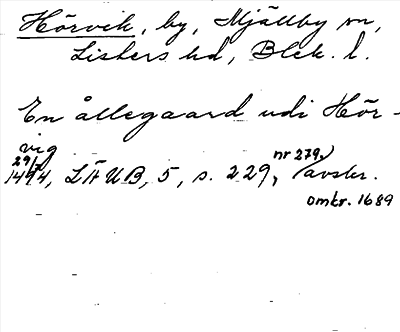 Hörvik, by, Mjällby sn,
Listers hd, Blek. l.
En ållegaard udi Hör-
vig
29/7
1494, LÄUB, 5, s. 229, nr 279, avskr.
omkr. 1689